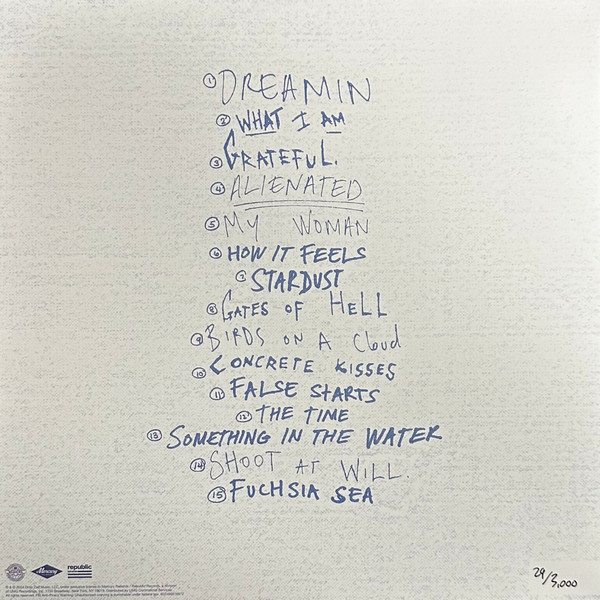 ① DREAMIN
② WHAT I AM
③ GRATEFUL.
④ ALIENATED
⑤ MY WOMAN
⑥ HOW IT FEELS
⑦ STARDUST
⑧ GATES OF HELL
⑨ BIRDS ON A Cloud
⑩ CONCRETE KISSES
⑪ FALSE STARTS
⑫ THE TIME
⑬ SOMETHING IN THE WATER
⑭ SHOOT AT WILL.
⑮ FUCHSIA SEA
Mercury republic
29/3,000